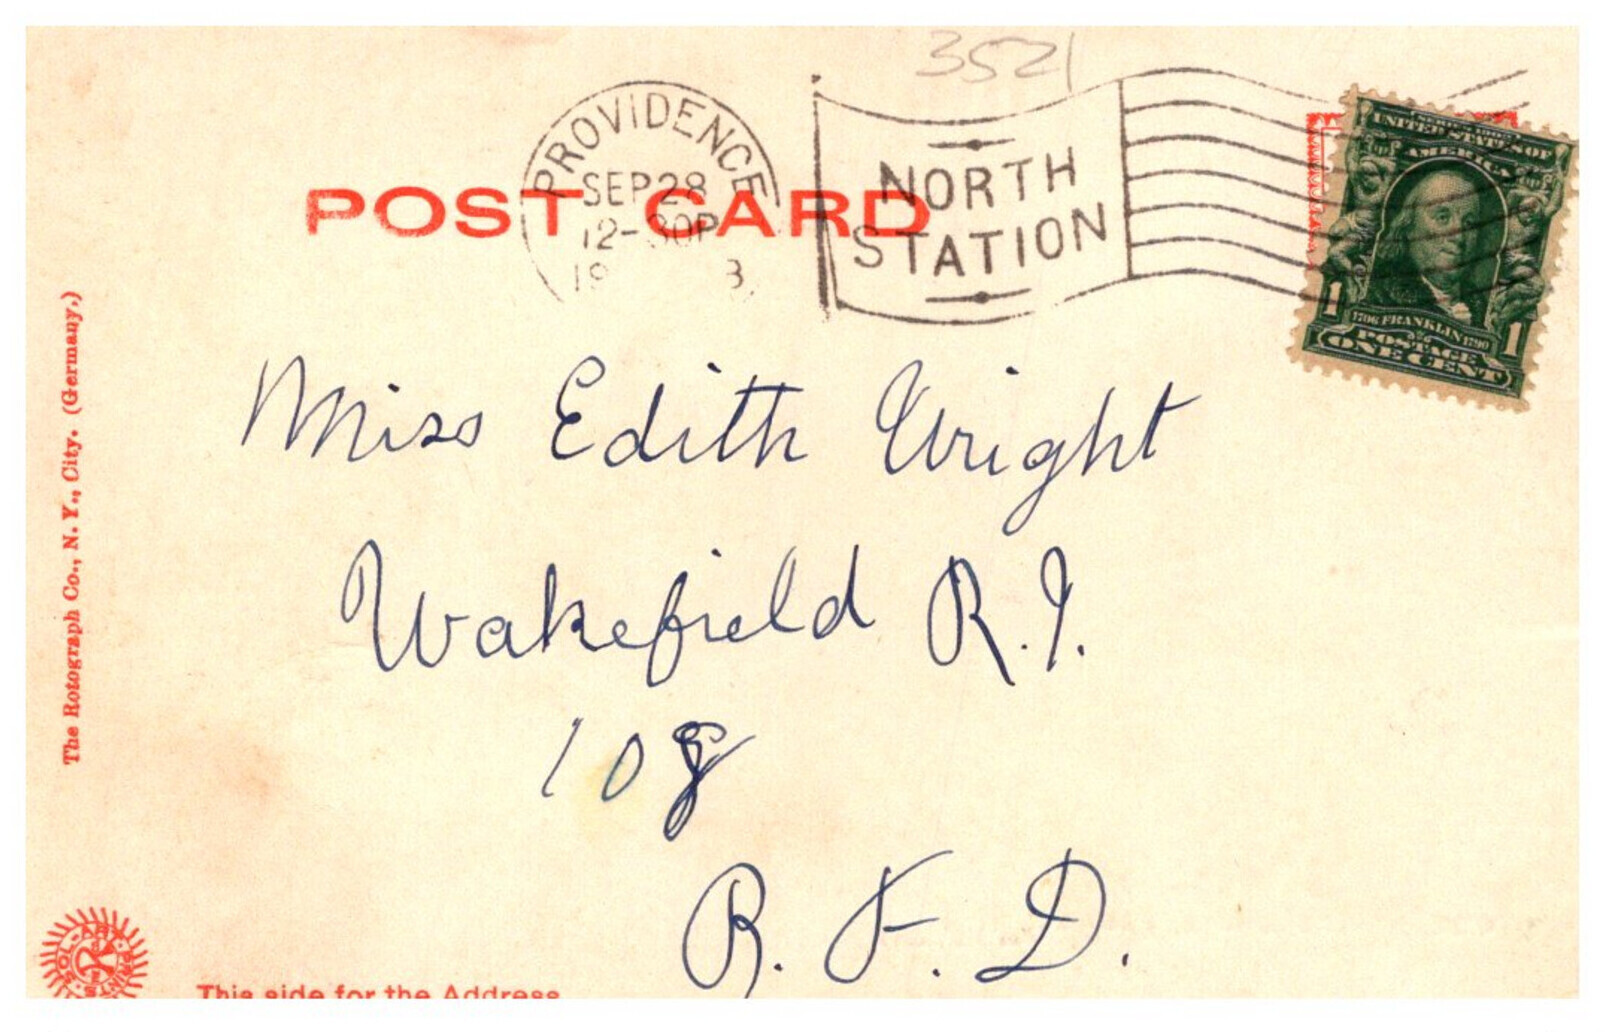 3521
PROVIDENCE
SEP 28
12-30P
19 3
NORTH
STATION
POST CARD
SERIES 1902
UNITED STATES OF
AMERICA
1 1
1706 FRANKLIN 1790
POSTAGE
ONE CENT
Miss Edith Wright
Wakefield R.I.
10
R. F. D.
The Rotograph Co., N. Y., City. (Germany.)
SOL-ART PRINTS
This side for the Address